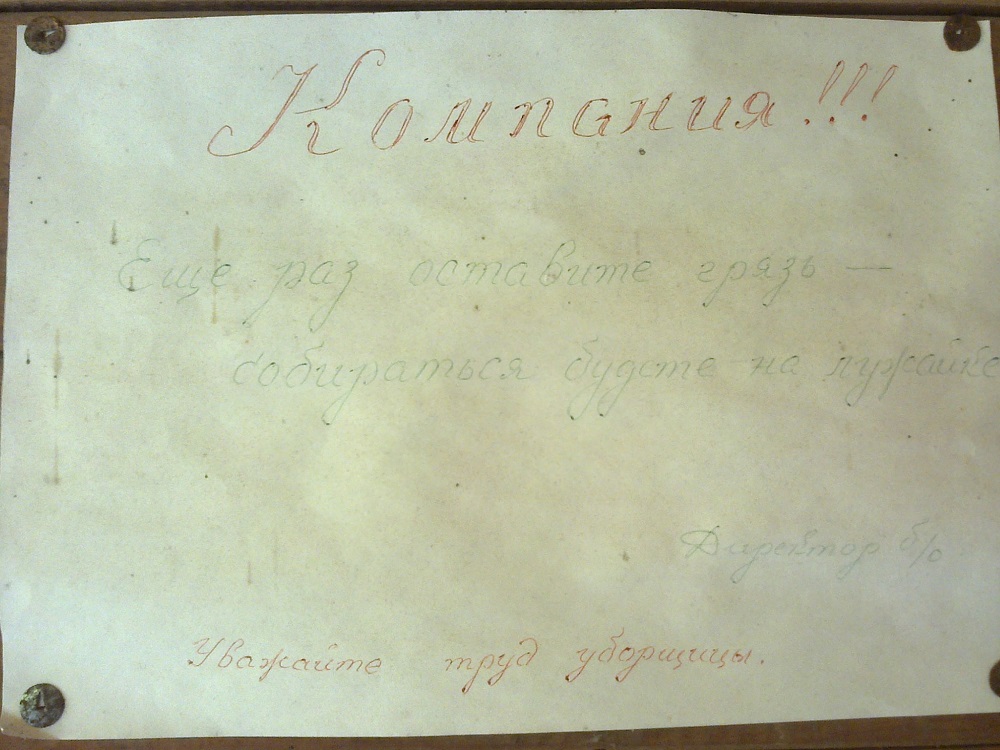 Компания!!!
Еще раз оставите грязь —
собираться будете на лужайке
Директор б/о
Уважайте труд уборщицы.